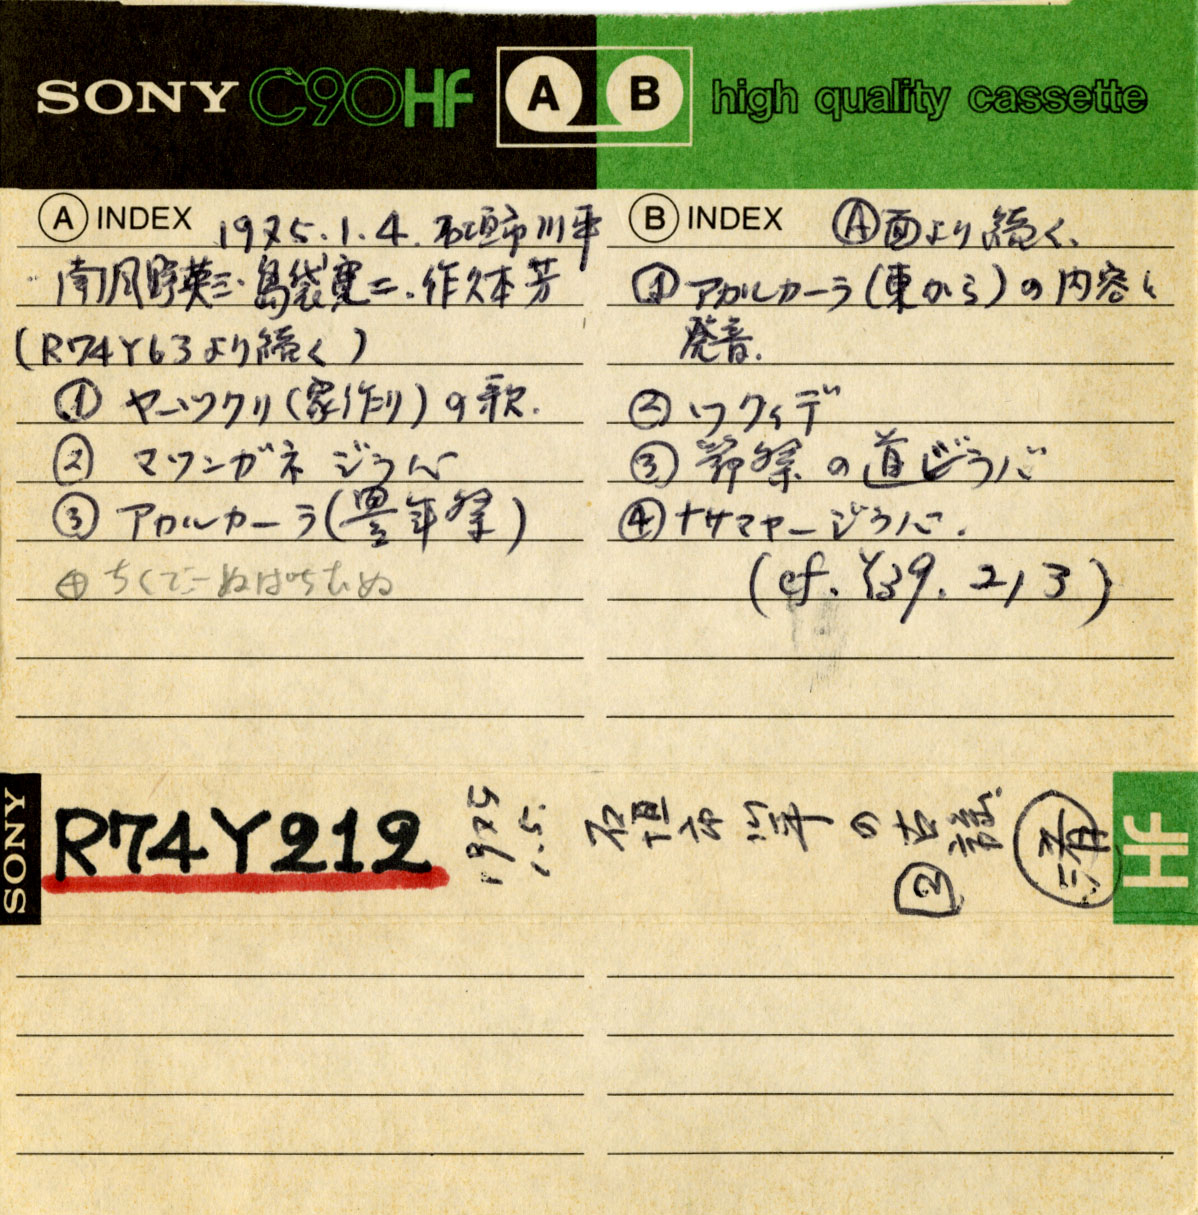 SONY C90HF A B high quality cassette
A INDEX 1975.1.4. 石垣市川平
南風野英三・島袋寛二・作久本芳
(R74Y63より続く)
① ヤーツクリ(家作り)の歌.
② マツンガネ ジラバ
③ アカルカーラ(豊年祭)
④ ちくでーぬはぢぬ
B INDEX Ⓐ面より続く.
① アカルカーラ(東から)の内容と
発音.
② ワクィデ
③ 節祭の道ジラバ
④ ナサマヤージラバ.
(cf. Y39. 213)
SONY
R74Y212
1975
1.5.
石垣市川平の古謡
②
済
HF